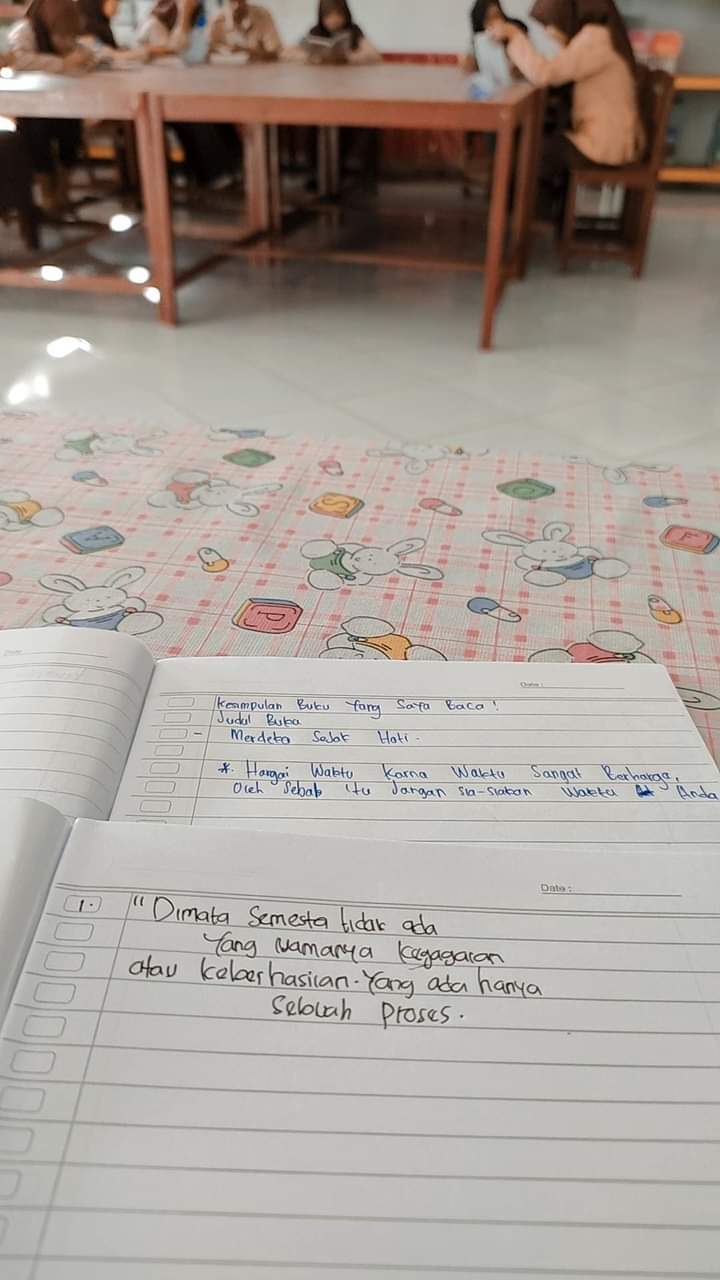 Date :
Kesimpulan Buku Yang Saya Baca !
Judul Buku
- Merdeka Sejak Hati.
*. Hargai Waktu Karna Waktu Sangat Berharga,
Oleh Sebab itu Jangan sia-siakan Waktu Anda
Date :
1. "Dimata Semesta tidak ada
Yang Namanya kegagalan
atau keberhasilan. Yang ada hanya
Sebuah proses.